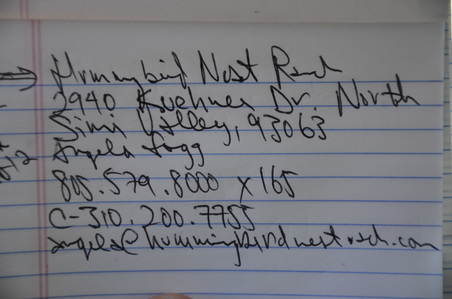 ⇒ Hummingbird Nest Ranch
2940 Kuehner Dr. North
Simi Valley, 93063
Angela
805.579.8000 x165
C-310.200.7755
angela@hummingbirdnestranch.com